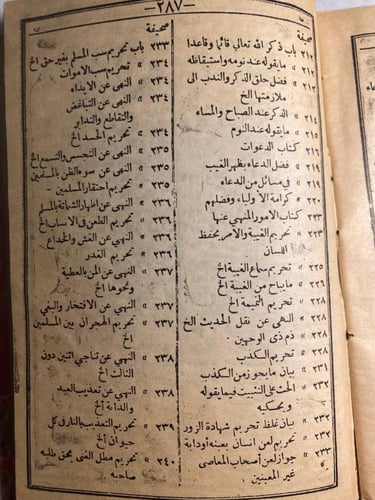 ﴿٢٨٧﴾
صحيفة
٢١٢ باب ذكر الله تعالى قائما وقاعدا
٢١٢ » ما يقوله عند نومه واستيقاظه
٢١٢ » فضل حلق الذكر والندب الى
ملازمتها الخ
٢١٤ » الذكر عند الصباح والمساء
٢١٥ » ما يقوله عند النوم
٢١٦ كتاب الدعوات
٢١٩ » فضل الدعاء بظهر الغيب
٢١٩ » فى مسائل من الدعاء
٢٢٠ » كرامة الأولياء وفضلهم
٢٢٣ كتاب الامور المنهى عنها
٢٢٣ » تحريم الغيبة والامر بحفظ
اللسان
٢٢٥ » تحريم سماع الغيبة الخ
٢٢٦ » ما يباح من الغيبة الخ
٢٢٨ » تحريم النميمة الخ
٢٢٨ » النهى عن نقل الحديث الخ
٢٢٨ » ذم ذى الوجهين
٢٢٨ » تحريم الكذب
٢٣١ » بيان ما يجوز من الكذب
٢٣٢ » الحث على التثبت فيما يقوله
ويحكيه
٢٣٢ » بيان غلظ تحريم شهادة الزور
٢٣٢ » تحريم لعن انسان بعينه أو دابة
٢٣٣ » جواز لعن أصحاب المعاصى
غير المعينين
صحيفة
٢٣٣ باب تحريم سب المسلم بغير حق الخ
٢٣٤ » تحريم سب الاموات
٢٣٤ » النهى عن الايذاء
٢٣٤ » النهى عن التباغض
والتقاطع والتدابر
٢٣٤ » تحريم الحسد الخ
٢٣٥ » النهى عن التجسس والتسمع الخ
٢٣٥ » النهى عن سوء الظن بالمسلمين
٢٣٥ » تحريم احتقار المسلمين
٢٣٦ » النهى عن اظهار الشماتة بالمسلم
٢٣٦ » تحريم الطعن فى الانساب الخ
٢٣٦ » النهى عن الغش والخداع
٢٣٦ » تحريم الغدر
٢٣٧ » النهى عن المن بالعطية
ونحوها الخ
٢٣٧ » النهى عن الافتخار والبغى
٢٣٧ » تحريم الهجران بين المسلمين
الخ
٢٣٨ » النهى عن تناجى اثنين دون
الثالث الخ
٢٣٨ » النهى عن تعذيب العبد
والدابة الخ
٢٣٩ » تحريم التعذيب بالنار فى كل
حيوان الخ
٢٤٠ » تحريم مطل الغنى بحق طلبه
صاحبه